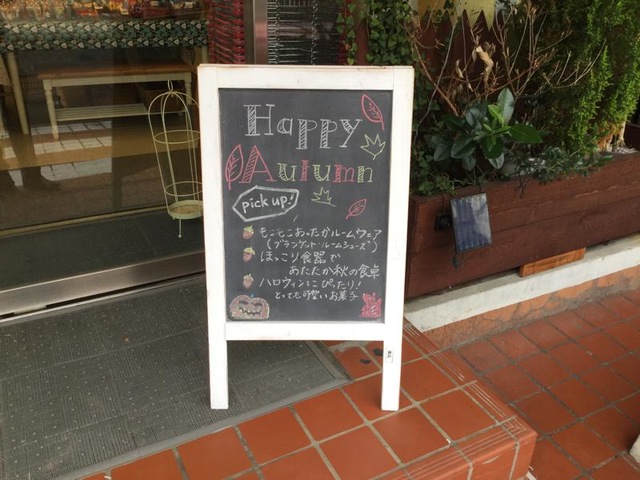 Happy
Autumn
pick up!
もこもこあったかルームウェア
(ブランケット・ルームシューズ)
ほっこり食器で
あたたか秋の食卓
ハロウィンにぴったり!
とっても可愛いお菓子